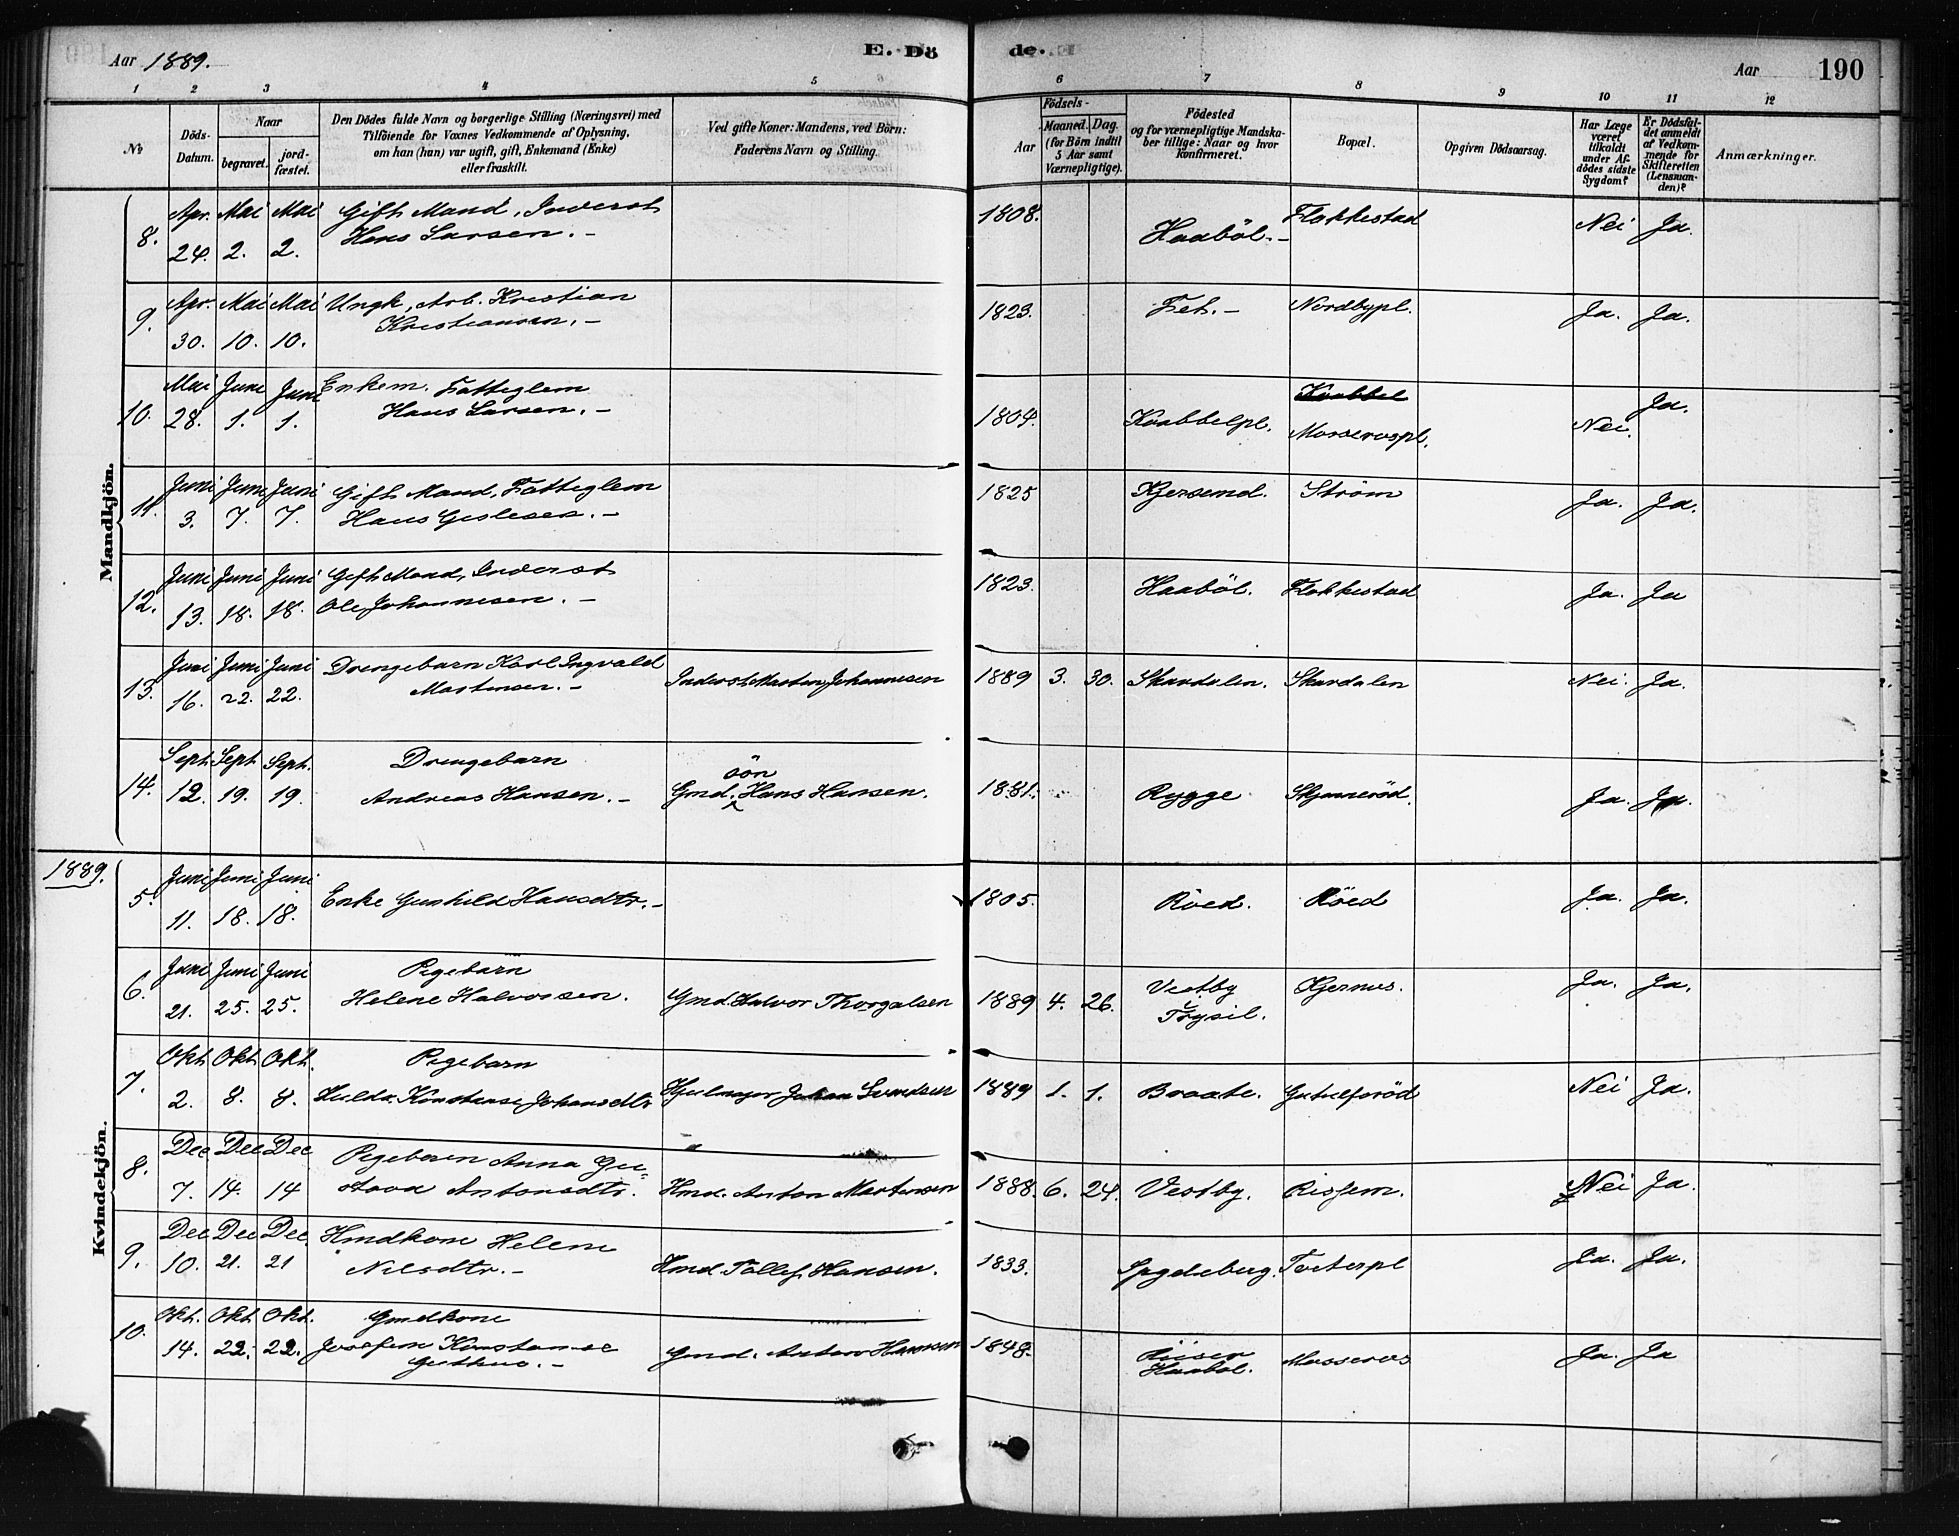 Aar 1889.
E. Dö
de. E
Aar
190
1 2 3 4 5
6 7 8 9 10 11 12
No
Döds-Datum.
Naar
begravet.
jord-fæstet.
Den Dödes fulde Navn og borgerlige Stilling (Næringsvei) med
Tilföiende for Voxnes Vedkommende af Oplysning,
om han (hun) var ugift, gift, Enkemand (Enke)
eller fraskilt.
Ved gifte Koner: Mandens, ved Börn:
Faderens Navn og Stilling.
Födsels-
Aar
Maaned. Dag.
(for Börn indtil
5 Aar samt
Værnepligtige).
Födested
og for værnepligtige Mandska-
ber tillige: Naar og hvor
konfirmeret.
Bopæl.
Opgiven Dödsaarsag.
Har Læge
været
tilkaldt
under Af-
dödes sidste
Sygdom?
Er Dödsfal-
det anmeldt
af Vedkom-
mende for
Skifteretten
(Lensman-
den)?
Anmærkninger.
Mandkjön.
8. Apr. 24. Mai 2. Mai 2. Gift Mand, Inderst
Hans Larsen. - 1808. Haaböl. - Flakkestad Nei Ja.
9. Apr. 30. Mai 10. Mai 10. Ungk, Arb. Kristian
Kristiansen. - 1823. Fet. - Nordbypl. Ja. Ja.
10. Mai 28. Juni 1. Juni 1. Enkem. Fatteglem
Hans Larsen. - 1804. Krabbelpl. Krabbel
Mosserospl. Nei. Ja.
11. Juni 3. Juni 7. Juni 7. Gift Mand, Fatteglem
Hans Gulesen. - 1825 Kjersund. Ström Ja. Ja.
12. Juni 13. Juni 18. Juni 18. Gift Mand, Inderst
Ole Johannesen. - 1823. Haaböl. Flakkestad Ja. Ja
13. Juni 16. Juni 22. Juni 22. Drengebarn Karl Ingvald
Martinsen. - Inderst Martin Johannesen 1889 3. 30. Skardalen. Skardalen Nei. Ja.
14. Sept. 12. Sept. 19. Sept. 19. Drengebarn
Andreas Hansen. - Gmd. sön Hans Hansen. 1881. Rygge Skjanneröd. Ja. Ja.
1889.
Kvindekjön.
5. Juni 11. Juni 18. Juni 18. Enke Gunhild Hansdtr. - 1805. Röed. Röed Ja. Ja.
6. Juni 21. Juni 25. Juni 25. Pigebarn
Helene Halvorsen. Gmd. Halvor Thorgalsen 1889 4. 26. Vestby
Trysil. Kjernes. Ja. Ja.
7. Okt. 2. Okt. 8. Okt. 8. Pigebarn
Hulda Konstanse Johansdtr. Hjulmager Johan Svendsen 1889 1. 1. Braate. Gutulfsröd Nei Ja.
8. Dec 7. Dec 14. Dec 14 Pigebarn Anna Gu-
stava Antonsdtr. Hmd. Anton Martinsen 1888. 6. 24. Vestby. Rissem. Nei Ja.
9. Dec 10. Dec 21. Dec. 21 Hmdkone Helene
Nilsdtr. - Hmd. Tollef Hansen. 1833. Spydeberg. Tveterpl Ja. Ja.
10. Okt. 14. Okt 22. Okt. 22. Gmdkone
Josefine Konstance
- Gmd. Anton Hansen 1848. Haaböl. Mosseros Ja. Ja